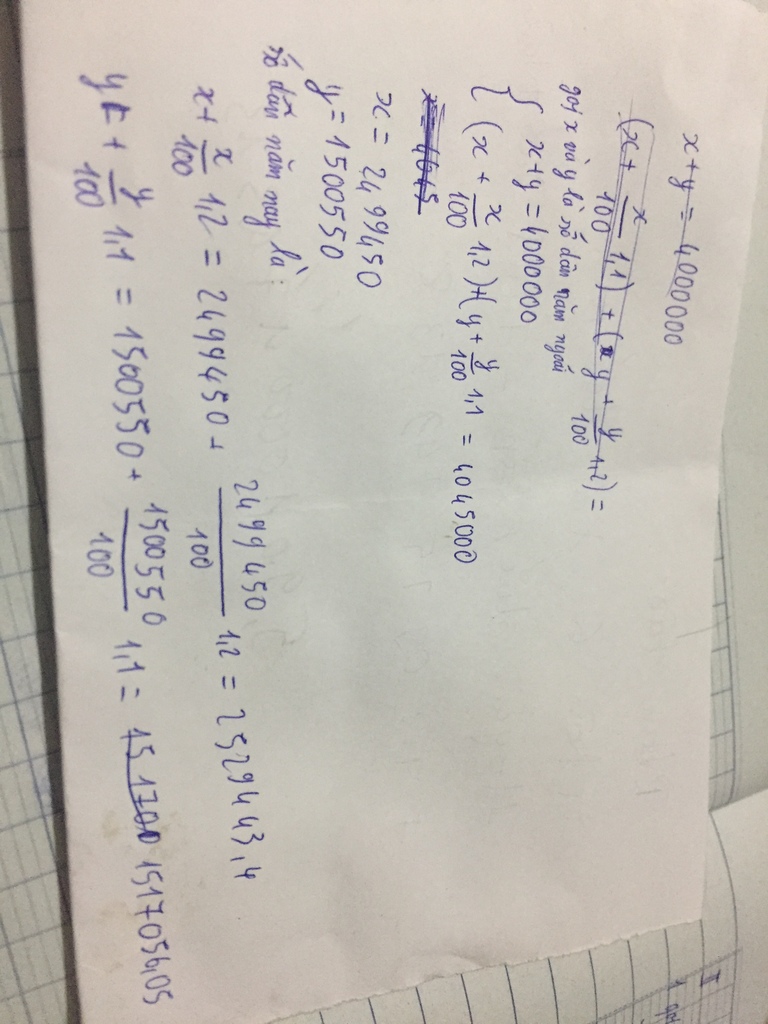 x + y = 4000000
(x + x/100 1,1) + (xy + y/100 1,2) =
gọi x và y là số dân năm ngoái
{ x + y = 4000000
(x + x/100 1,2) + (y + y/100 1,1 = 4045000
x = 4045
x = 2499450
y = 1500550
số dân năm nay là:
x + x/100 1,2 = 2499450 + 2499450/100 1,2 = 2529443,4
y + y/100 1,1 = 1500550 + 1500550/100 1,1 = 151700 1517056,05